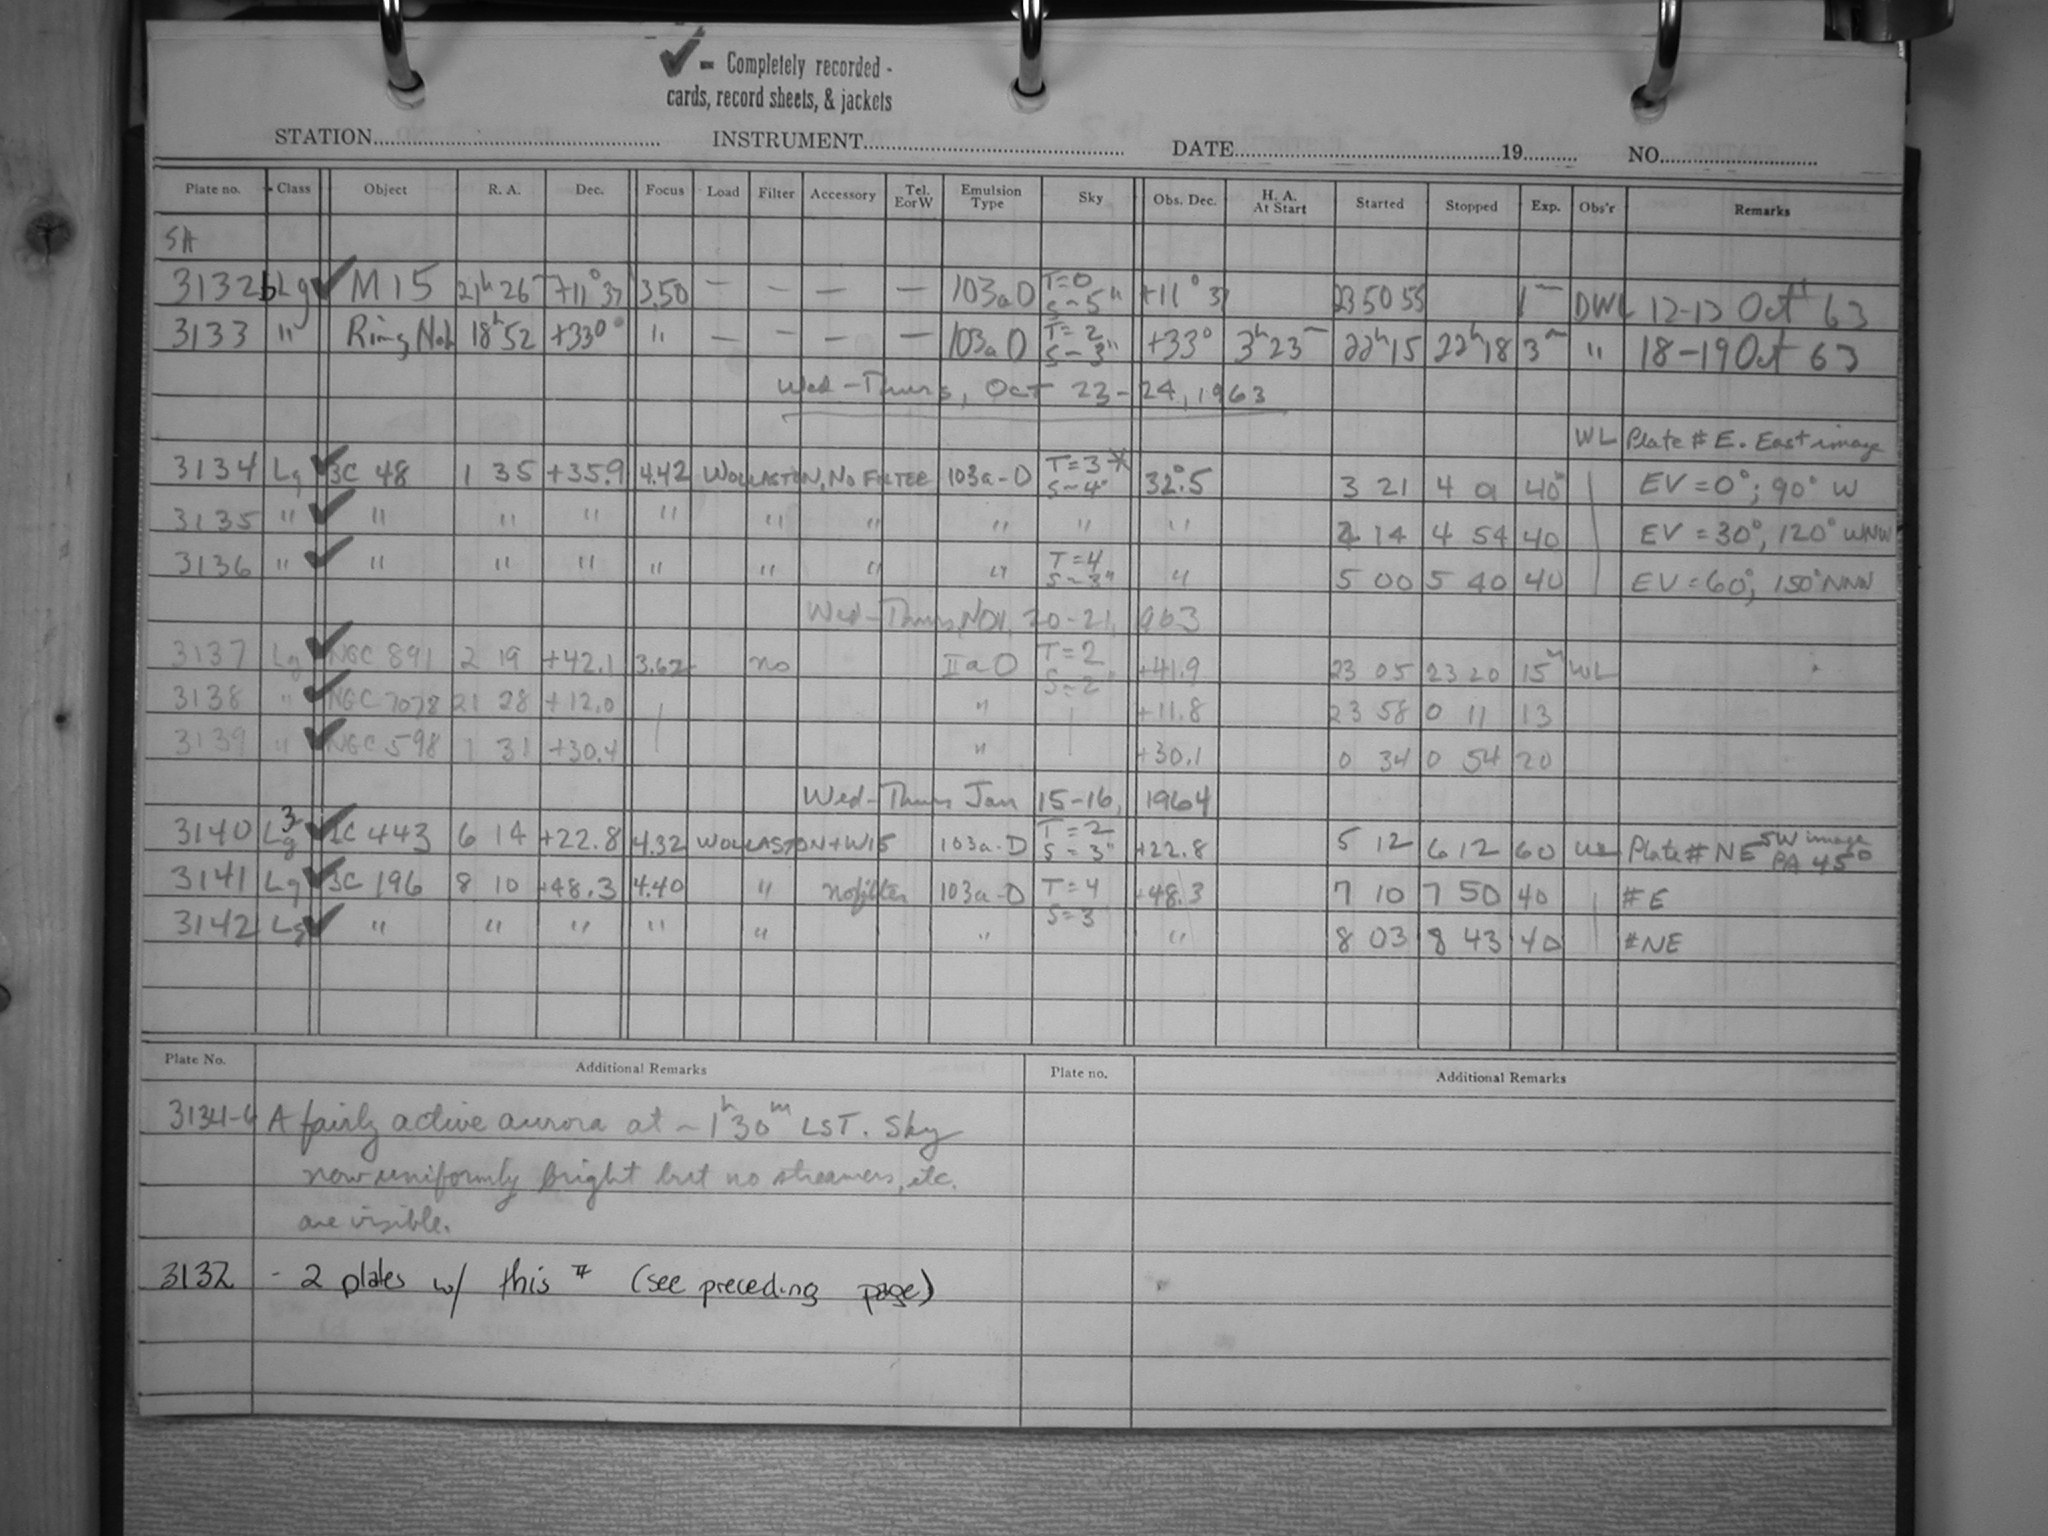 ✓ = Completely recorded -
cards, record sheets, & jackets
STATION INSTRUMENT DATE 19 NO.
Plate no. Class Object R. A. Dec. Focus Load Filter Accessory Tel. E or W Emulsion Type Sky Obs. Dec. H. A. At Start Started Stopped Exp. Obs'r Remarks
SA
3132b Lg ✓ M 15 21h 26 +11° 37 3.50 — — — — 103aO T=0 S~5" +11° 37 23 50 55 1m DWL 12-13 Oct 63
3133 " Ring Neb 18h 52 +33° " — — — — 103aO T=2 S~3" +33° 3h 23m 22h 15 22h 18 3m " 18-19 Oct 63
Wed-Thurs, Oct 23-24, 1963
WL Plate # E. East image
3134 Lg ✓ 3C 48 1 35 +35.9 4.42 WOLLASTON, NO FILTER 103a-D T=3* S~4" 32°.5 3 21 4 01 40m EV=0°; 90° W
3135 " ✓ " " " " " " " " " 4 14 4 54 40 EV=30°, 120° WNW
3136 " ✓ " " " " " " " T=4 S~3" " 5 00 5 40 40 EV=60°, 150° NNW
Wed-Thurs, Nov. 20-21, 1963
3137 Lg ✓ NGC 891 2 19 +42.1 3.62 no IIaO T=2 S~2" +41.9 23 05 23 20 15m WL
3138 " ✓ NGC 7078 21 28 +12.0 " +11.8 23 58 0 11 13
3139 " ✓ NGC 598 1 31 +30.4 " +30.1 0 34 0 54 20
Wed-Thurs Jan 15-16, 1964
3140 Lg ✓ IC 443 6 14 +22.8 4.32 WOLLASTON+W15 103a-D T=2 S=3" +22.8 5 12 6 12 60 WL Plate # NE SW image PA 45°
3141 Lg ✓ 3C 196 8 10 +48.3 4.40 " no filter 103a-D T=4 S=3 +48.3 7 10 7 50 40 # E
3142 Lg ✓ " " " " " " " 8 03 8 43 40 # NE
Plate No. Additional Remarks Plate no. Additional Remarks
3134-6 A fairly active aurora at ~1h30m LST. Sky
now uniformly bright but no streamers, etc.
are visible.
3132 - 2 plates w/ this # (see preceding page)